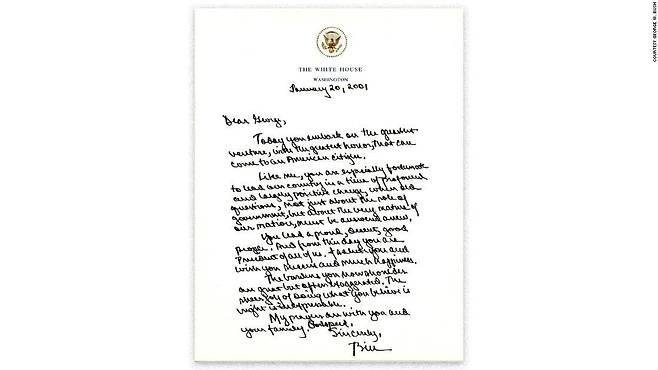 THE WHITE HOUSE
WASHINGTON
January 20, 2001
Dear George,
Today you embark on the greatest
venture, with the greatest honor, that can
come to an American citizen.
Like me, you are especially fortunate
to lead our country in a time of profound
and largely positive change, when old
questions, not just about the role of
government, but about the very nature of
our nation, must be answered anew.
You lead a proud, decent, good
people. And from this day you are
President of all of us. I salute you and
wish you success and much happiness.
The burdens you now shoulder
are great but often exaggerated. The
sheer joy of doing what you believe is
right is inexpressible.
My prayers are with you and
your family. Godspeed.
Sincerely,
Bill
COURTESY GEORGE W. BUSH